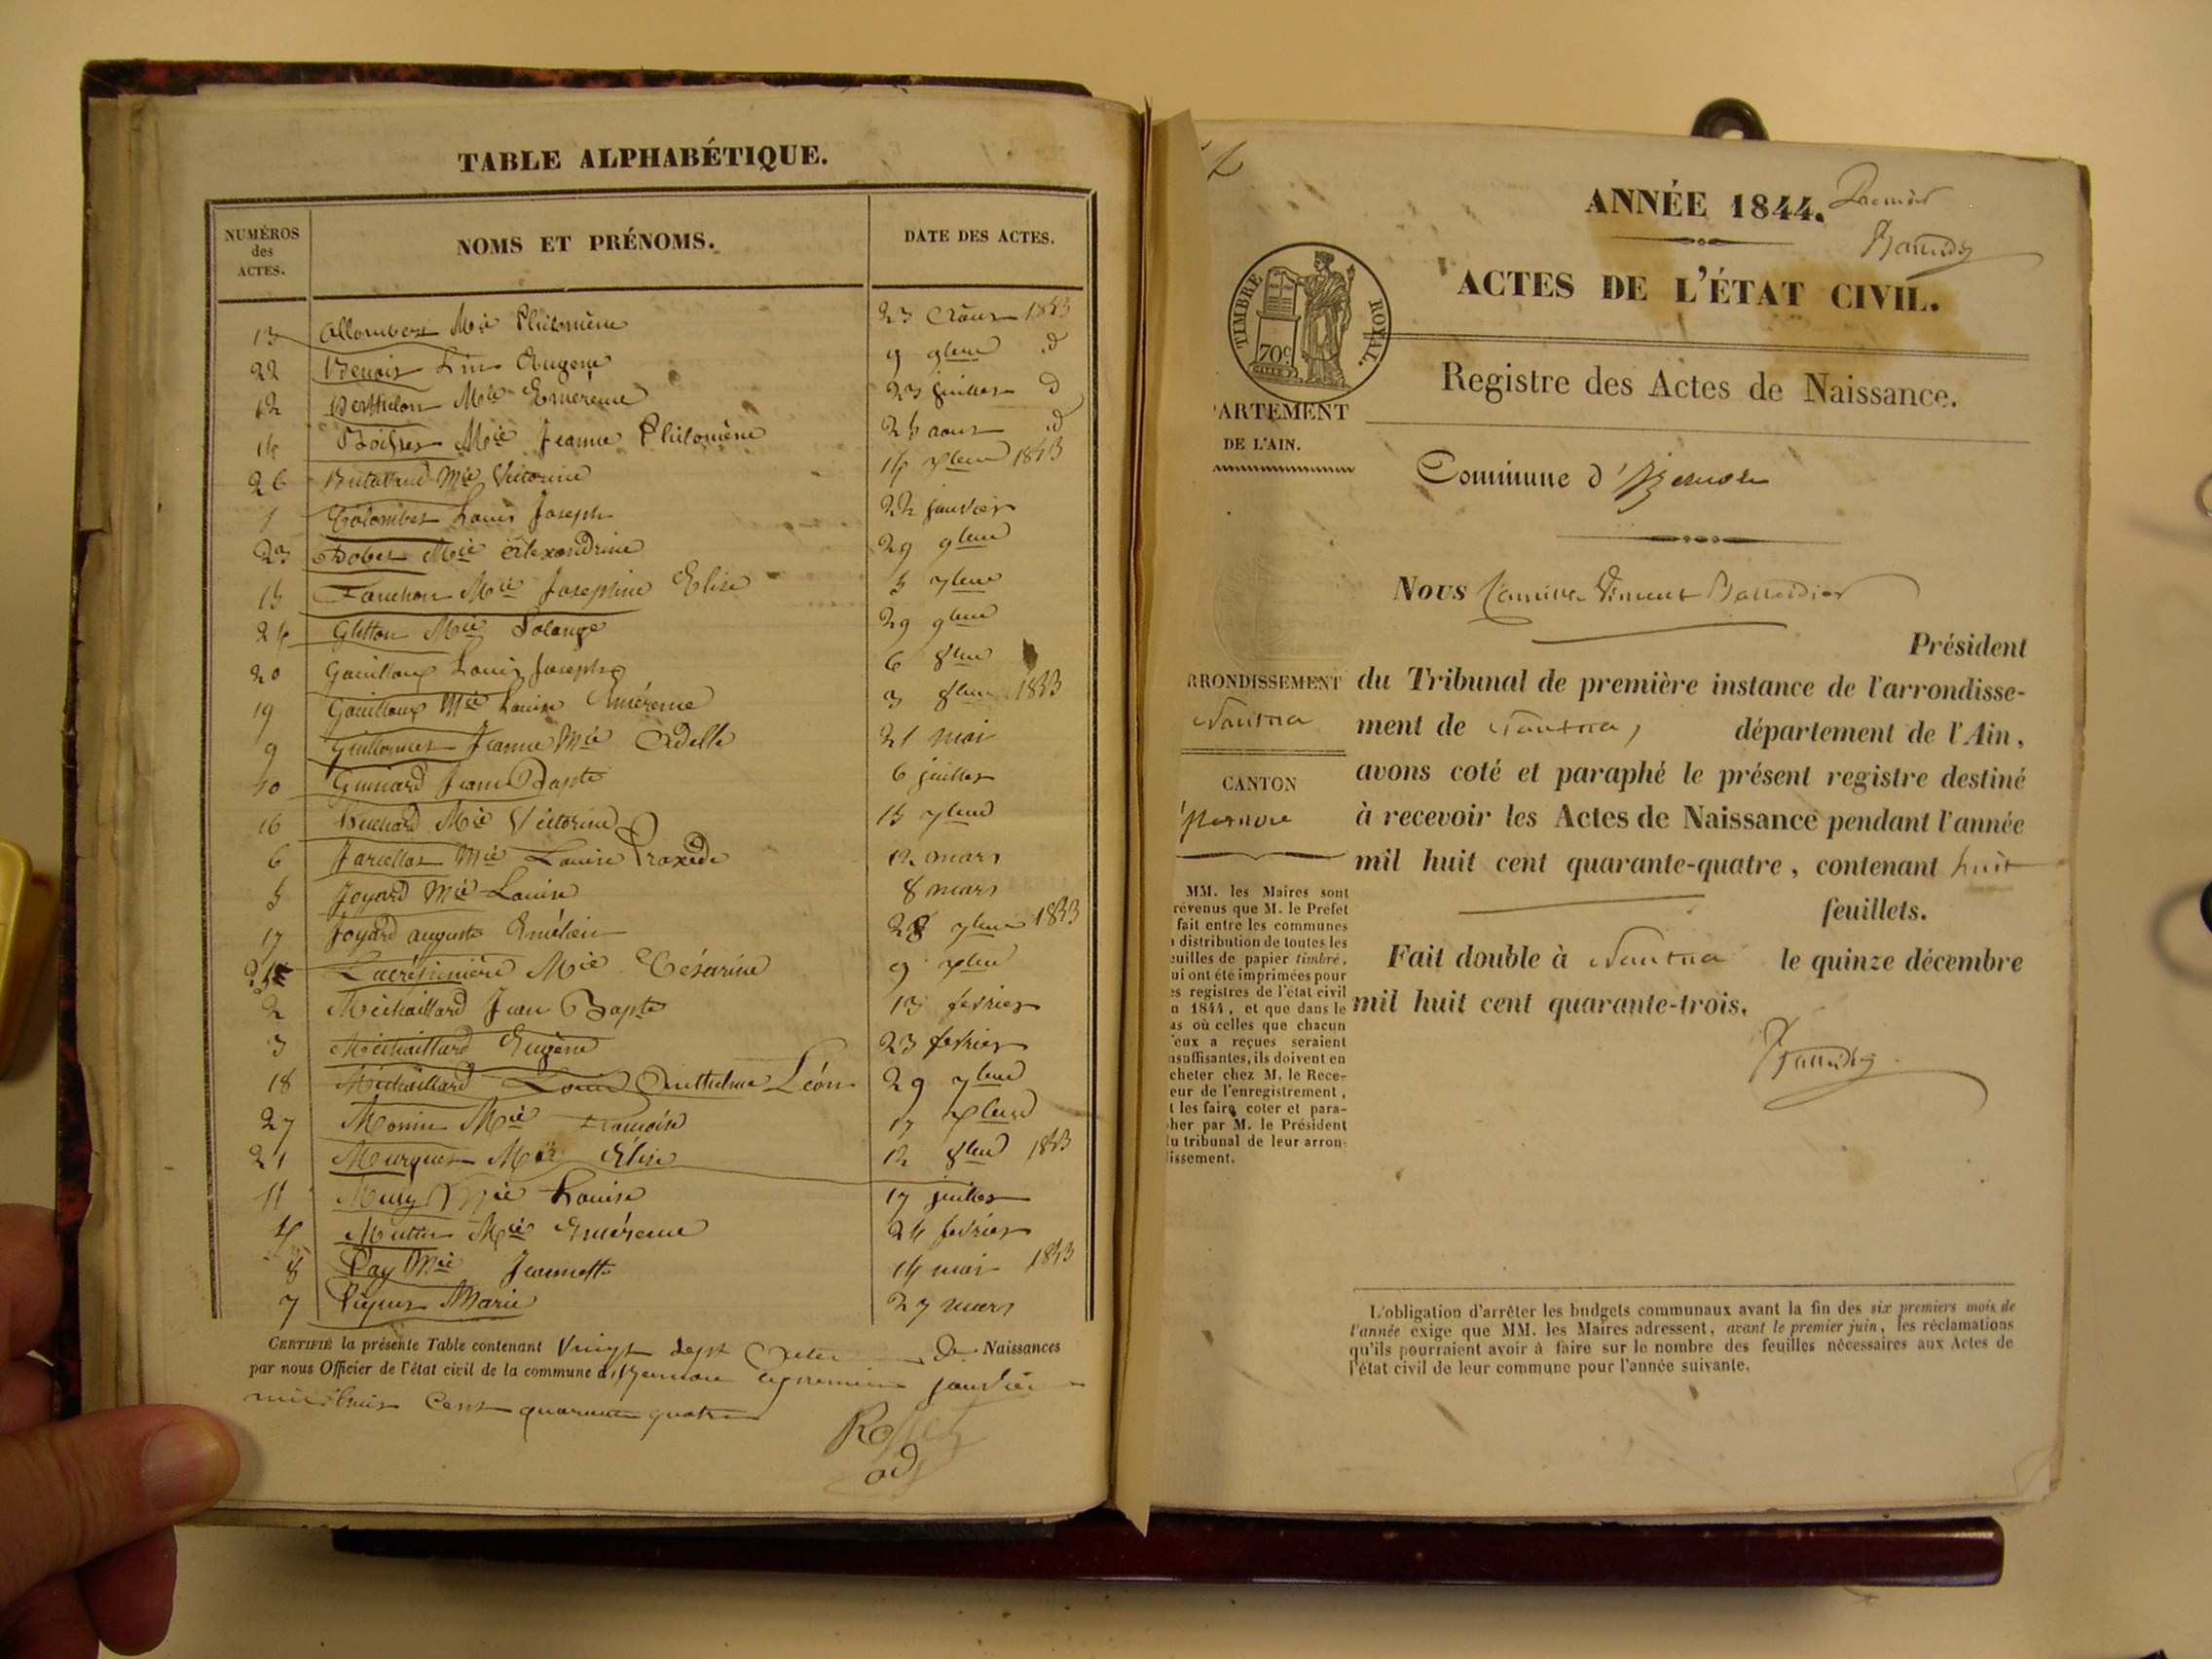 TABLE ALPHABÉTIQUE.
NUMÉROS
des
ACTES.
NOMS ET PRÉNOMS.
DATE DES ACTES.
13 Allombert Mie Philomène 23 Aout 1843
22 Benoit 9 9bre d
12 Berthelon Mie Emerence 23 juillet d
14 Mie Jeanne Philomène 24 aout d
26 Mie Victorine 14 xbre 1843
1 Colombet Louis Joseph 22 janvier
23 Mie Alexandrine 29 9bre
15 Fauchon Mie Josephine Elise 5 7bre
24 Gletton Mie Solange 29 9bre
20 Gouilloux Louis Joseph 6 8bre
19 Gouilloux Mie Louise Emérence 3 8bre 1843
9 Guillermet Jeanne Mie Adelle 21 mai
10 Guinard Jean Bapte 6 juillet
16 Huchard Mie Victorine 15 7bre
6 Mie Louise Praxède 12 mars
5 Joyard Mie Louise 8 mars
17 Joyard auguste Emélien 28 7bre 1843
25 Mie Césarine 9 xbre
2 Michaillard Jean Bapte 13 fevrier
3 Michaillard Eugène 23 fevrier
18 Michaillard Louis Anthelme Léon 29 7bre
27 Morin Mie 17 xbre
21 Murquet Mie Elise 12 8bre 1843
11 Mie Louise 17 juillet
4 Mie Emérence 24 fevrier
8 Pay Mie Jeannette 14 mai 1843
7 Marie 27 mars
CERTIFIÉ la présente Table contenant Vingt sept Actes de Naissances
par nous Officier de l'état civil de la commune d'Izernore le premier janvier
mil huit Cent quarante quatre
ANNÉE 1844. Premier
TIMBRE ROYAL.
70c
ACTES DE L'ÉTAT CIVIL.
Registre des Actes de Naissance.
'ARTEMENT
DE L'AIN.
Commune d'Izernore
Nous
Président
RRONDISSEMENT
Nantua
CANTON
Izernore
du Tribunal de première instance de l'arrondisse-
ment de Nantua, département de l'Ain,
avons coté et paraphé le présent registre destiné
à recevoir les Actes de Naissance pendant l'année
mil huit cent quarante-quatre, contenant huit
feuillets.
Fait double à Nantua le quinze décembre
mil huit cent quarante-trois.
MM. les Maires sont
révenus que M. le Préfet
fait entre les communes
distribution de toutes les
euilles de papier timbré,
ui ont été imprimées pour
es registres de l'état civil
n 1844, et que dans le
as où celles que chacun
'eux a reçues seraient
nsuffisantes, ils doivent en
cheter chez M. le Rece-
eur de l'enregistrement,
t les faire coter et para-
her par M. le Président
u tribunal de leur arron-
issement.
L'obligation d'arrêter les budgets communaux avant la fin des six premiers mois de
l'année exige que MM. les Maires adressent, avant le premier juin, les réclamations
qu'ils pourraient avoir à faire sur le nombre des feuilles nécessaires aux Actes de
l'état civil de leur commune pour l'année suivante.